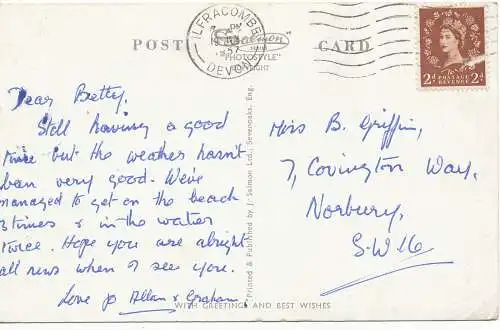 POST CARD
ILFRACOMBE
DEVON
57
Salmon
"PHOTOSTYLE"
COPYRIGHT
2d POSTAGE REVENUE 2d
Dear Betty,
Still having a good
time but the weather hasn't
been very good. We've
managed to get on the beach
3 times & in the water
twice. Hope you are alright
all news when I see you.
Love Jo Allan & Graham.
Printed & Published by J. Salmon Ltd., Sevenoaks, Eng.
Miss B. Griffin,
7, Covington Way,
Norbury,
S.W.16
WITH GREETINGS AND BEST WISHES